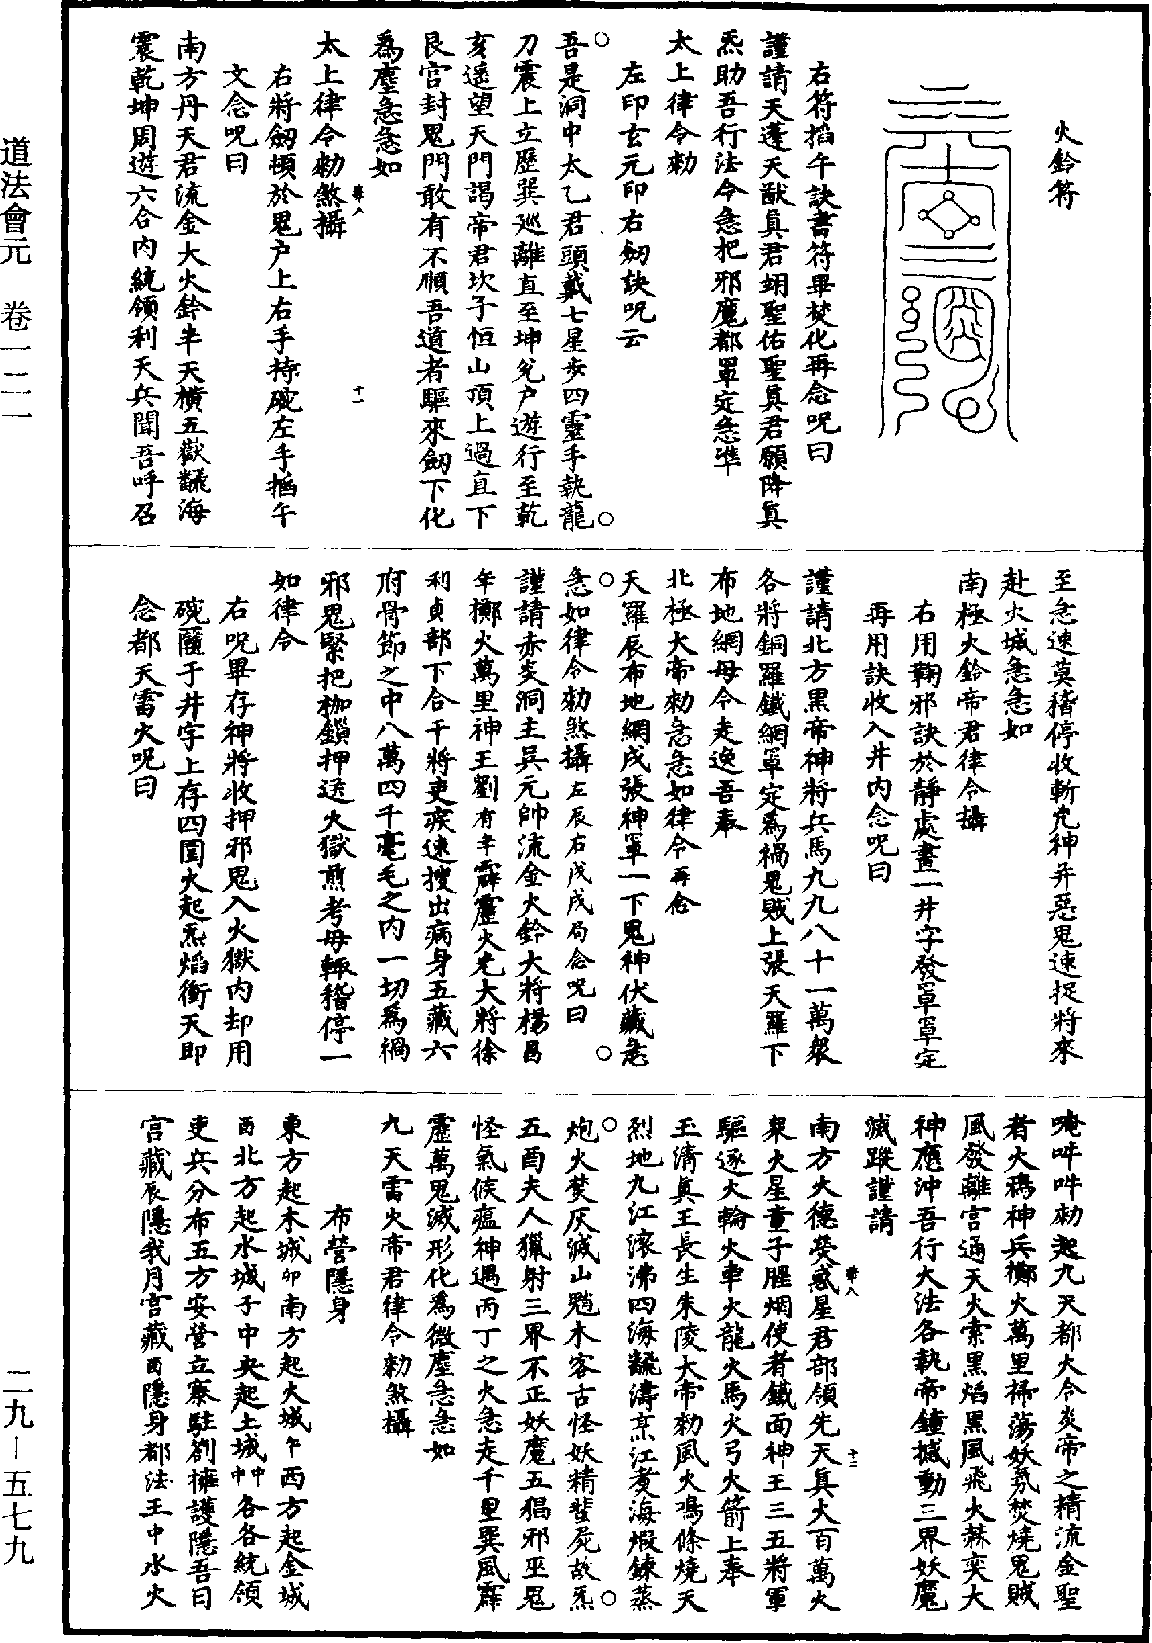 火鈴符
右符掐午訣書符畢焚化再念呪曰
謹請天蓬天猷真君翊聖佑聖真君願降真
炁助吾行法令急把邪魔都罩定急準
太上律令勑
左印玄元印右劒訣呪云
吾是洞中太乙君頭戴七星步四靈手執龍
刀震上立歷巽巡離直至坤兌户遊行至乾
亥遥望天門謁帝君坎子恒山頂上過直下
艮宫封鬼門敢有不順吾道者驅來劒下化
為塵急急如
太上律令勑煞攝
右將劒頓於鬼户上右手持碗左手掐午
文念呪曰
南方丹天君流金大火鈴半天橫五嶽飜海
震乾坤周遊六合内統領利天兵聞吾呼召
至急速莫稽停收斬兇神并惡鬼速捉將來
赴火城急急如
南極火鈴帝君律令攝
右用鞫邪訣於靜處畫一井字發罩罩定
再用訣收入井内念呪曰
謹請北方黑帝神將兵馬九九八十一萬衆
各將銅羅鐵網罩定為禍鬼賊上張天羅下
布地網毋令走逸吾奉
北極大帝勑急急如律令再念
天羅辰布地網戌張神罩一下鬼神伏藏急
急如律令勑煞攝左辰右戌戌局念呪曰
謹請赤炎洞主吴元帥流金火鈴大將楊昌
年擲火萬里神王劉有年霹靂火光大將徐
利貞部下合干將吏疾速搜出病身五藏六
府骨節之中八萬四千毫毛之内一切為禍
邪鬼緊把枷鎖押送火獄煎考毋輒稽停一
如律令
右呪畢存神將收押邪鬼入火獄内却用
碗匾于井字上存四圍火起炁焰衝天即
念都天雷火呪曰
唵吽吽勑起九天都大令炎帝之精流金聖
者火鴉神兵擲火萬里掃蕩妖氛焚燒鬼賊
風發離宫通天火索黑焰黑風飛火赫奕大
神應沖吾行大法各執帝鐘撼動三界妖魔
滅蹤謹請
南方火德熒惑星君部領先天真火百萬火
衆火星童子腥烟使者鐵面神王三五將軍
驅逐火輪火車火龍火馬火弓火箭上奉
玉清真王長生朱陵大帝勑風火鳴條燒天
烈地九江滾沸四海飜濤烹江煑海煅鍊蒸
炮火焚灰滅山魈木客古怪妖精蜚屍故炁
五酉夫人獵射三界不正妖魔五猖邪巫鬼
怪氣候瘟神遇丙丁之火急走千里巽風霹
靂萬鬼滅形化為微塵急急如
九天雷火帝君律令勑煞攝
布營隱身
東方起木城卯南方起火城午西方起金城
酉北方起水城子中央起土城中中各各統領
吏兵分布五方安營立寨駐劄擁護隱吾日
宫藏辰隱我月宫藏酉隱身都法王中水火
道法會元 卷一二一
二九－五七九